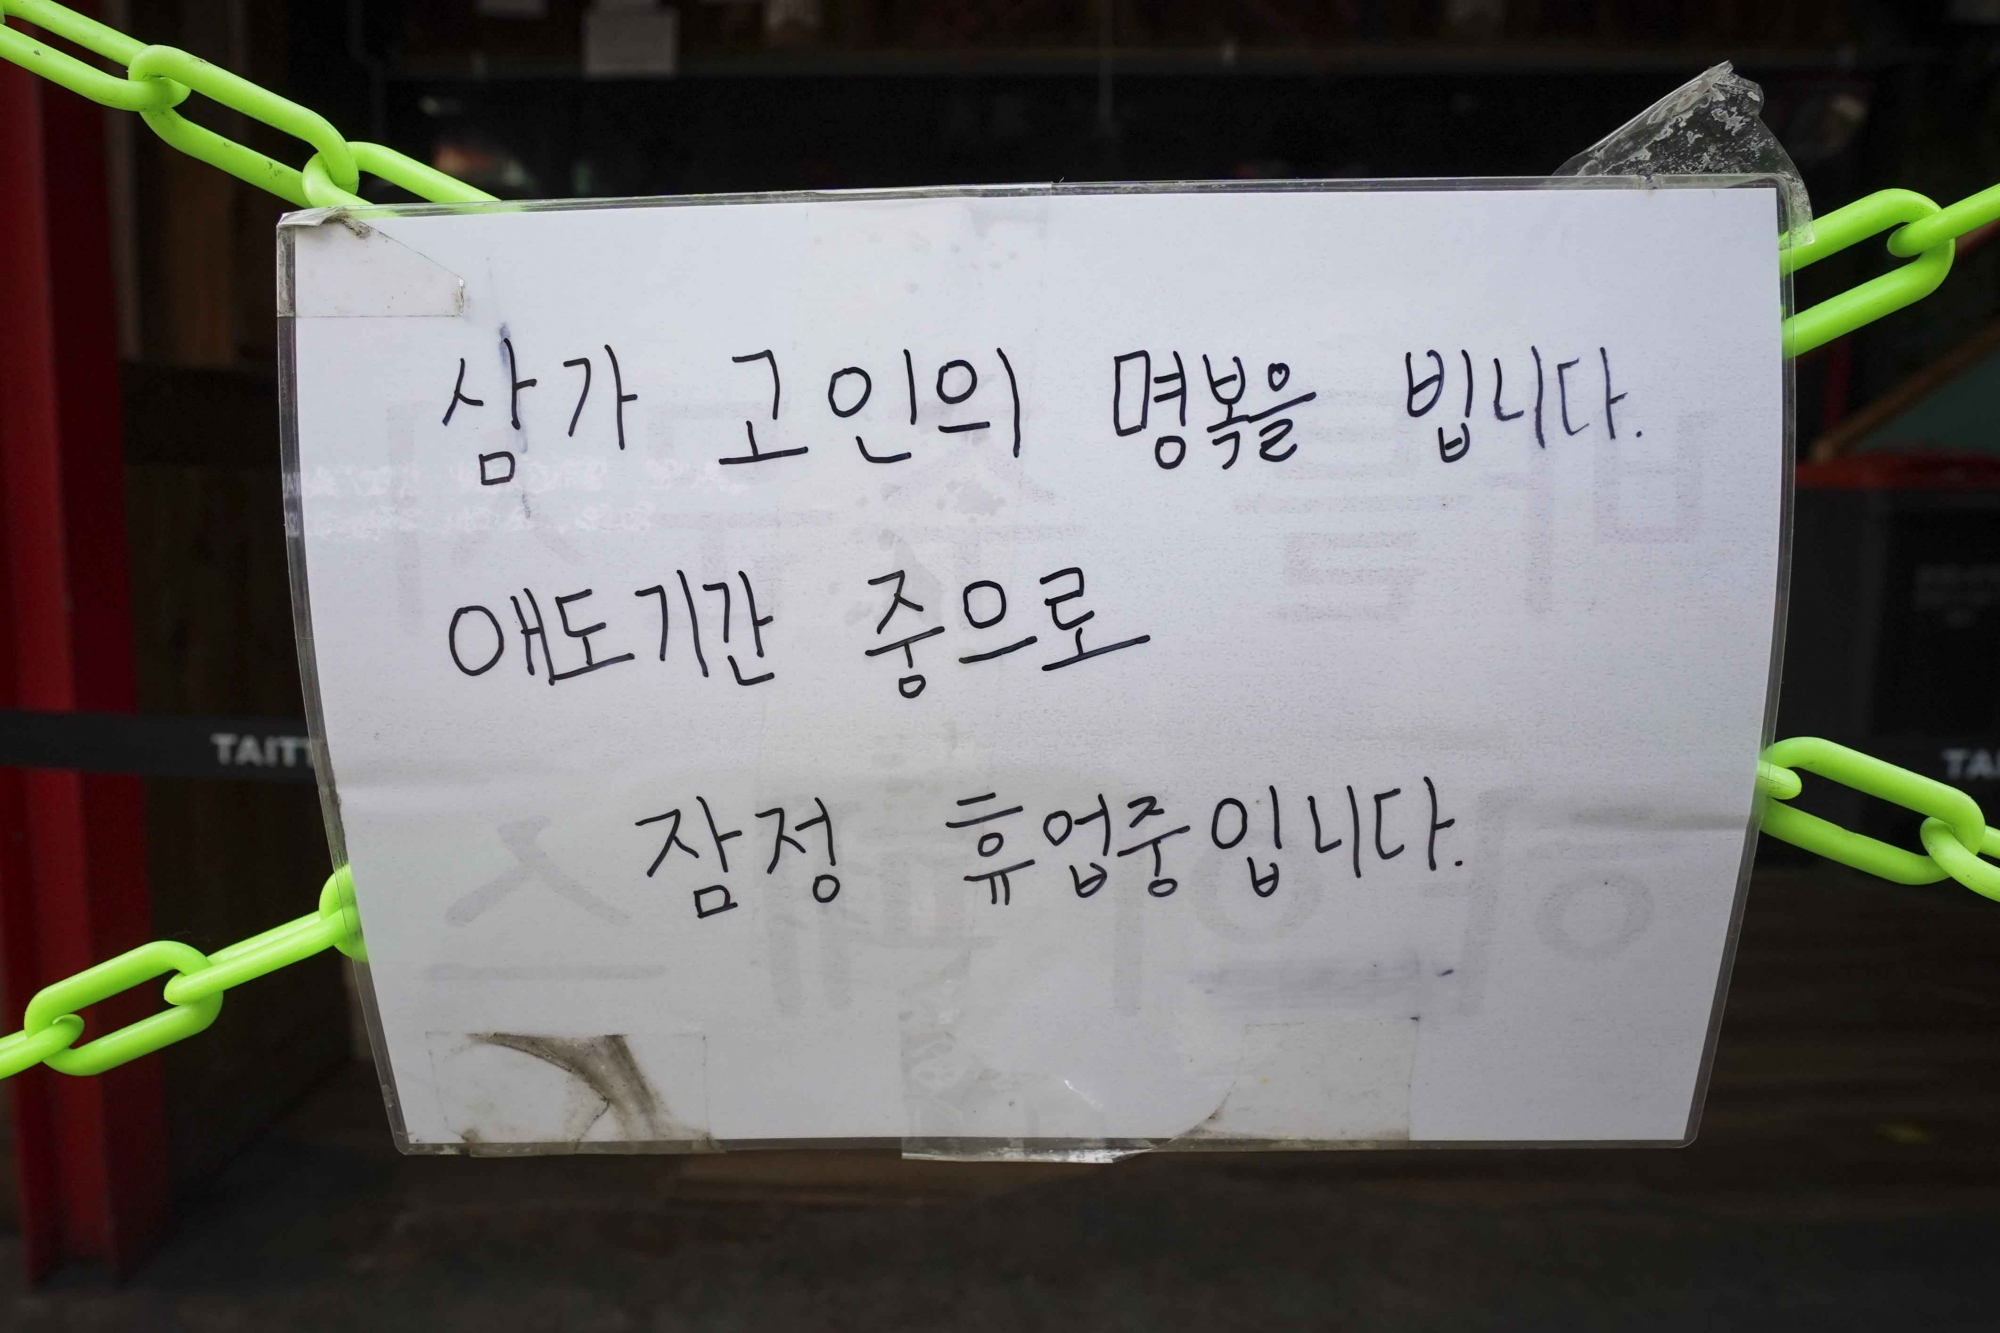 삼가 고인의 명복을 빕니다.
애도기간 중으로
잠정 휴업중입니다.